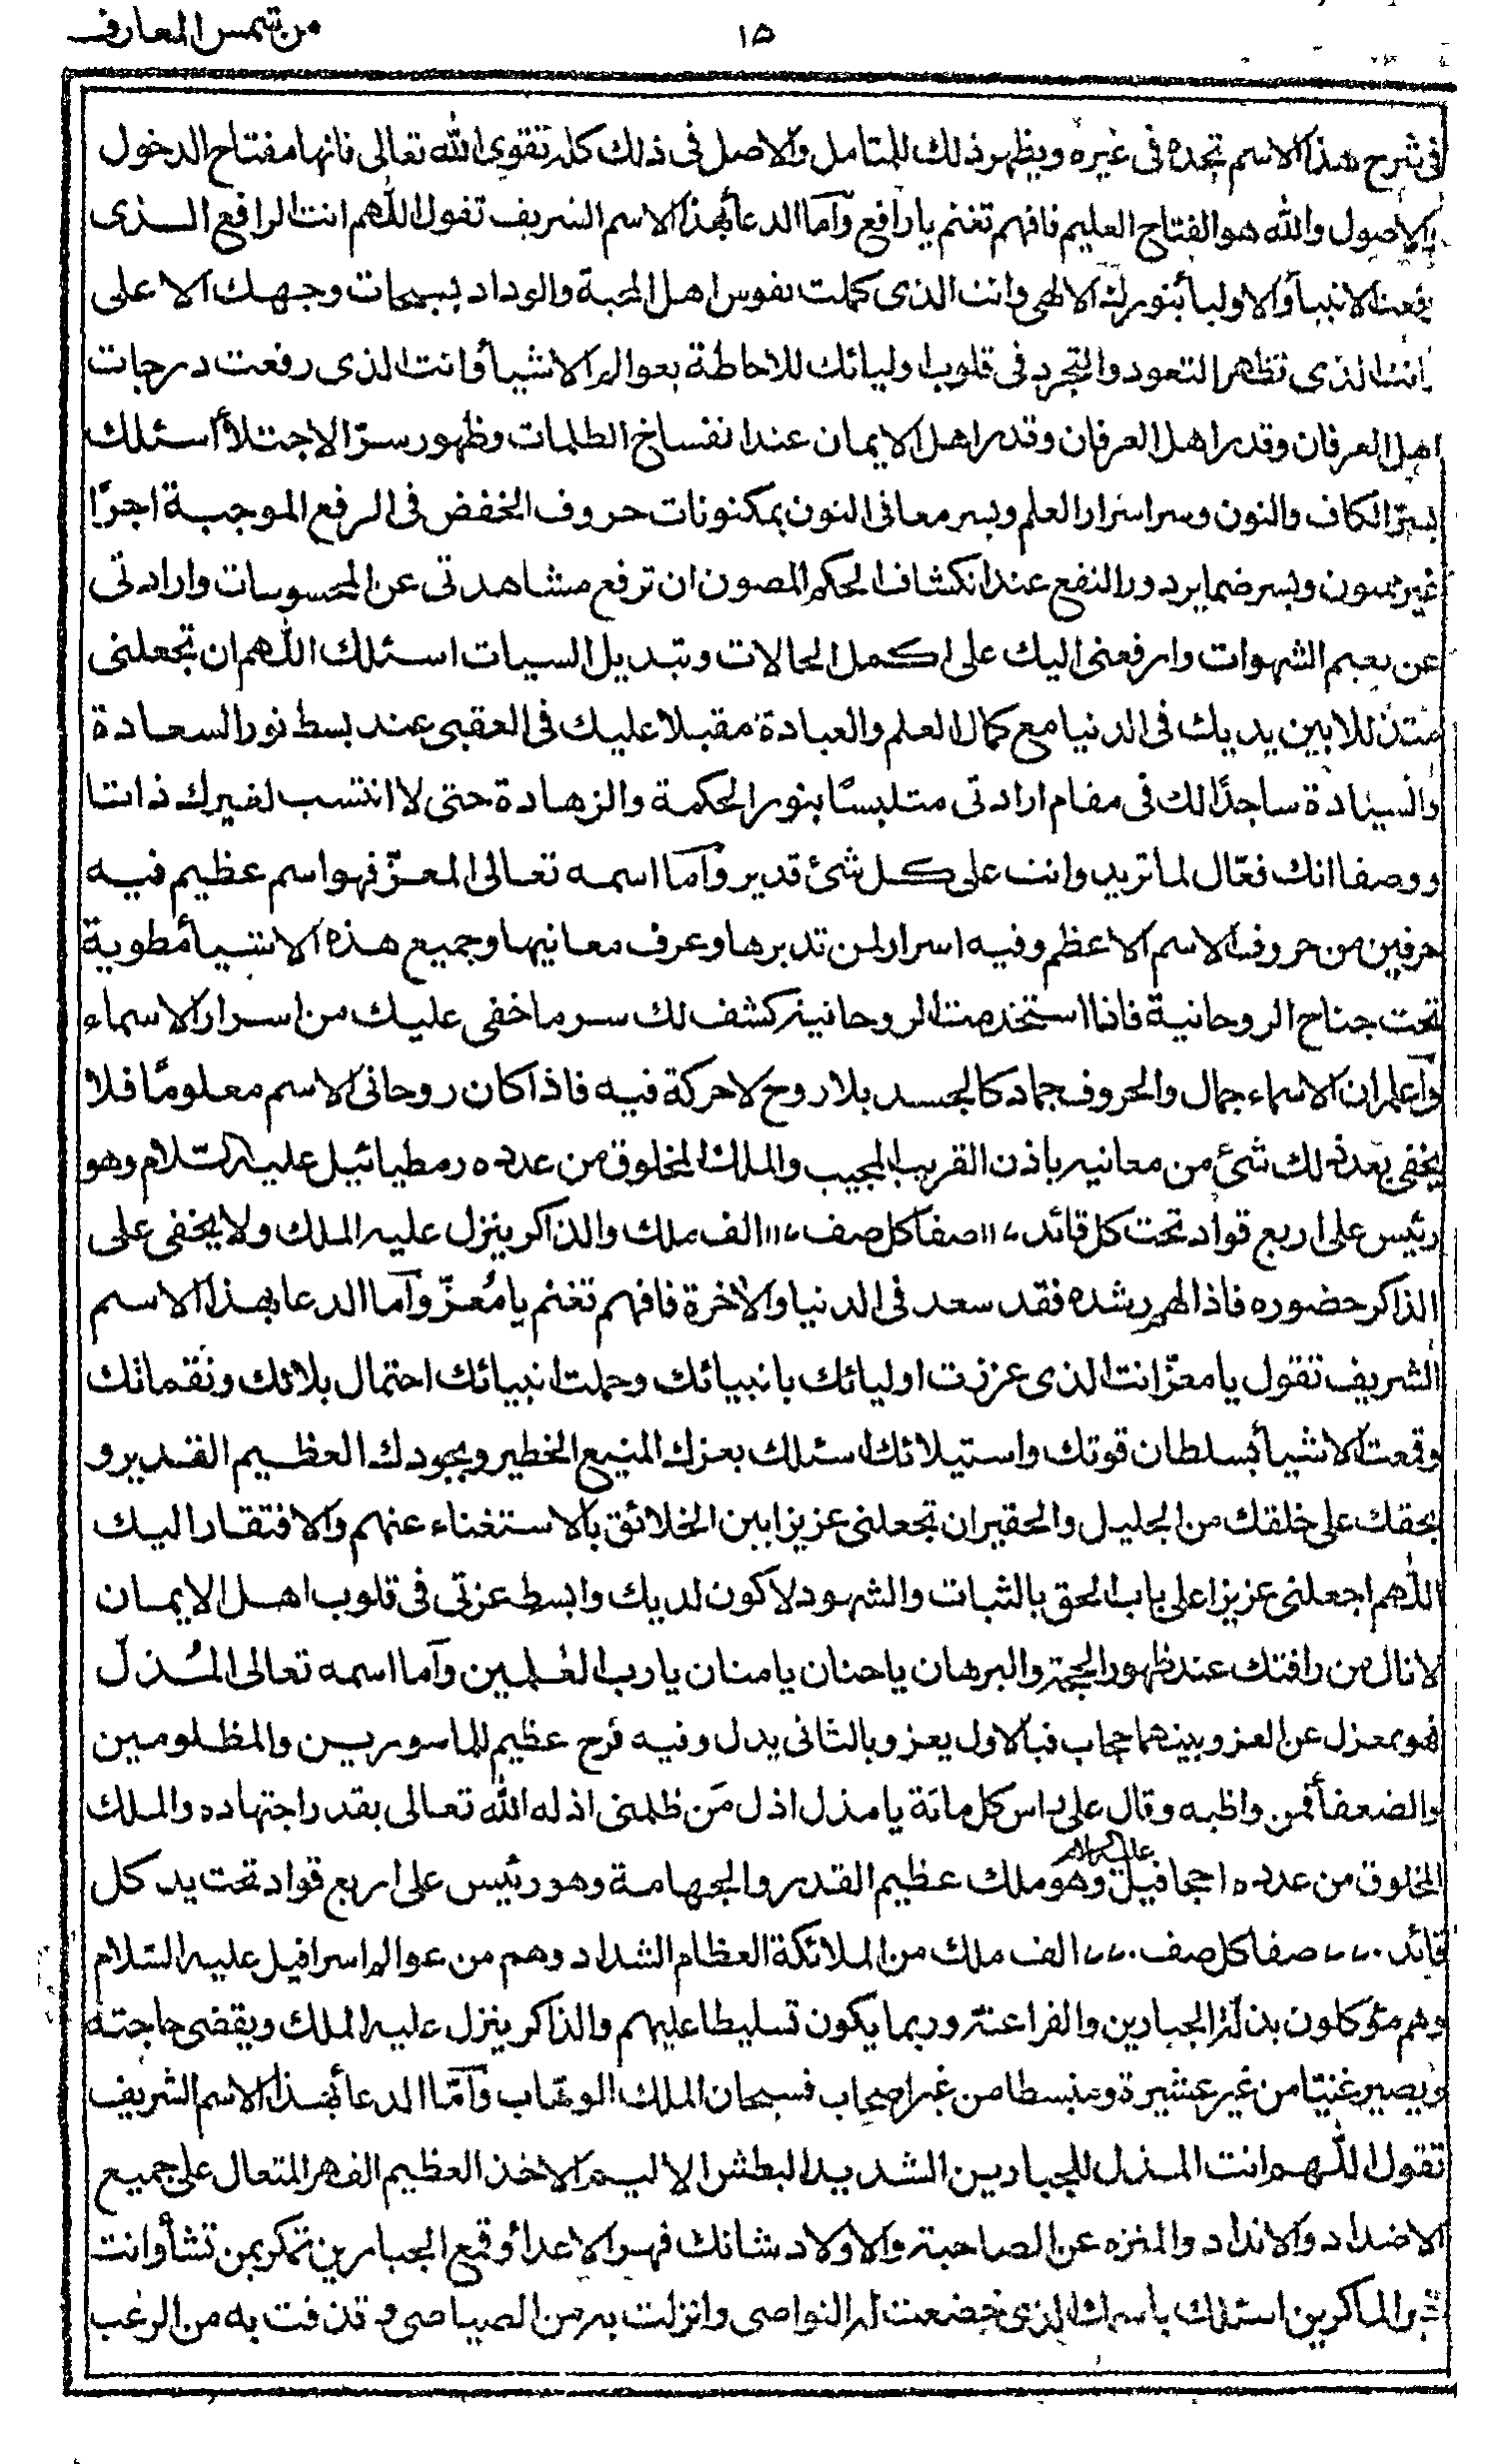 من شمس المعارف
١٥
فى شرح هذا الاسم تجده فى غيره ويظهر ذلك للمتامل والاصل فى ذلك كله تقوى الله تعالى فانها مفتاح الدخول
الاصول والله هو الفتاح العليم فافهم تغنم يا رافع وآما الدعأ بهذا الاسم الشريف تقول اللهم انت الرافع الذى
رفعت الانبيأ والاوليأ بنورك الالهى وانت الذى كملت نفوس اهل المحبة والوداد بسبحات وجهك الاعلى
انت الذى تظهر التعود والتجرد فى قلوب اوليائك للاحاطة بعوالم الاشيأ وانت الذى رفعت درجات
اهل العرفان وقدر اهل العرفان وقدر اهل الايمان عند انفساخ الظلمات وظهور سرّ الاجتلأ اسئلك
بسرّ الكاف والنون وسر اسرار العلم وبسر معانى النون بمكنونات حروف الخفض فى الرفع الموجبة اجرًا
غير ممنون وبسر ضما يردور النفع عند انكشاف الحكم المصون ان ترفع مشاهدتى عن المحسوسات وارادتى
عن الشهوات وارفعنى اليك على اكمل الحالات وتبديل السيات اسئلك اللهم ان تجعلنى
متذللا بين يديك فى الدنيا مع كمال العلم والعبادة مقبلا عليك فى العقبى عند بسط نور السعادة
والسيادة ساجدًا لك فى مقام ارادتى متلبسًا بنور الحكمة والزهادة حتى لا انتسب لغيرك ذاتا
ووصفا انك فعّال لما تريد وانت على كل شئ قدير وآما اسمه تعالى المعزّ فهو اسم عظيم فيه
حرفين من حروف الاسم الاعظم وفيه اسرار لمن تدبرها وعرف معانيها وجميع هذه الاشيأ مطوية
تحت جناح الروحانية فاذا استخدمت الروحانية كشف لك سر ما خفى عليك من اسرار الاسماء
وآعلم ان الاسماء جمال والحروف جماد كالجسد بلا روح لا حركة فيه فاذا كان روحانى الاسم معلومًا فلا
يخفى بعد ذلك شئ من معانيه باذن القريب المجيب والملك المخلوق من عدده رمطيائيل عليه السّلام وهو
رئيس على اربع قواد تحت كل قائد ١١٧ صفا كل صف ١١٧ الف ملك والذاكر ينزل عليه الملك ولا يخفى على
الذاكر حضوره فاذا الهم رشده فقد سعد فى الدنيا والاخرة فافهم تغنم يا مُعزّ وآما الدعا بهذا الاسم
الشريف تقول يا معزّ انت الذى عززت اوليائك بانبيائك وحملت انبيائك احتمال بلائك ونقماتك
وقمعت الاشيأ بسلطان قوتك واستيلائك اسئلك بعزك المنيع الخطير وبجودك العظيم القدير و
بحقك على خلقك من الجليل والحقير ان تجعلنى عزيزا بين الخلائق بالاستغناء عنهم والافتقار اليك
اللهم اجعلنى عزيزا على باب الحق بالثبات والشهود لاكون لديك وابسط عزتى فى قلوب اهل الايمان
لانال من رافتك عند ظهور الحجة والبرهان يا حنان يا منان يا رب العٰلمين وآما اسمه تعالى المُذلّ
فهو بمعزل عن العز وبينهما حجاب فبالاول يعز وبالثانى يدل وفيه فرح عظيم للماسورين والمظلومين
والضعفأ فمن واظبه وقال على راس كل مائة يا مذل اذل مَن ظلمنى اذله الله تعالى بقدر اجتهاده والملك
المخلوق من عدده اججافيل عليه السلام وهو ملك عظيم القدر والجهامة وهو رئيس على اربع قواد تحت يد كل
قائد ٧٧٠ صفا كل صف ٧٧٠ الف ملك من الملائكة العظام الشداد وهم من عوالم اسرافيل عليه السّلام
وهم مؤكلون بذلّة الجبارين والفراعنة وربما يكون تسليطا عليهم والذاكر ينزل عليه الملك ويقضى حاجته
ويصير غنيّا من غير عشيرة ومنبسطا من غير اصحاب فسبحان الملك الوهّاب وآمّا الدعأ بهذا الاسم الشريف
تقول اللهم انت المذل للجبارين الشديد البطش الاليم الاخذ العظيم القهر المتعال على جميع
الاضداد والانداد والمنزه عن الصاحبة والاولاد شانك قهر الاعدأ وقمع الجبارين تمكر بمن تشأ وانت
خير الماكرين اسئلك باسمك الذى خضعت له النواصى وانزلت به من الصياصى وقذفت به من الرعب